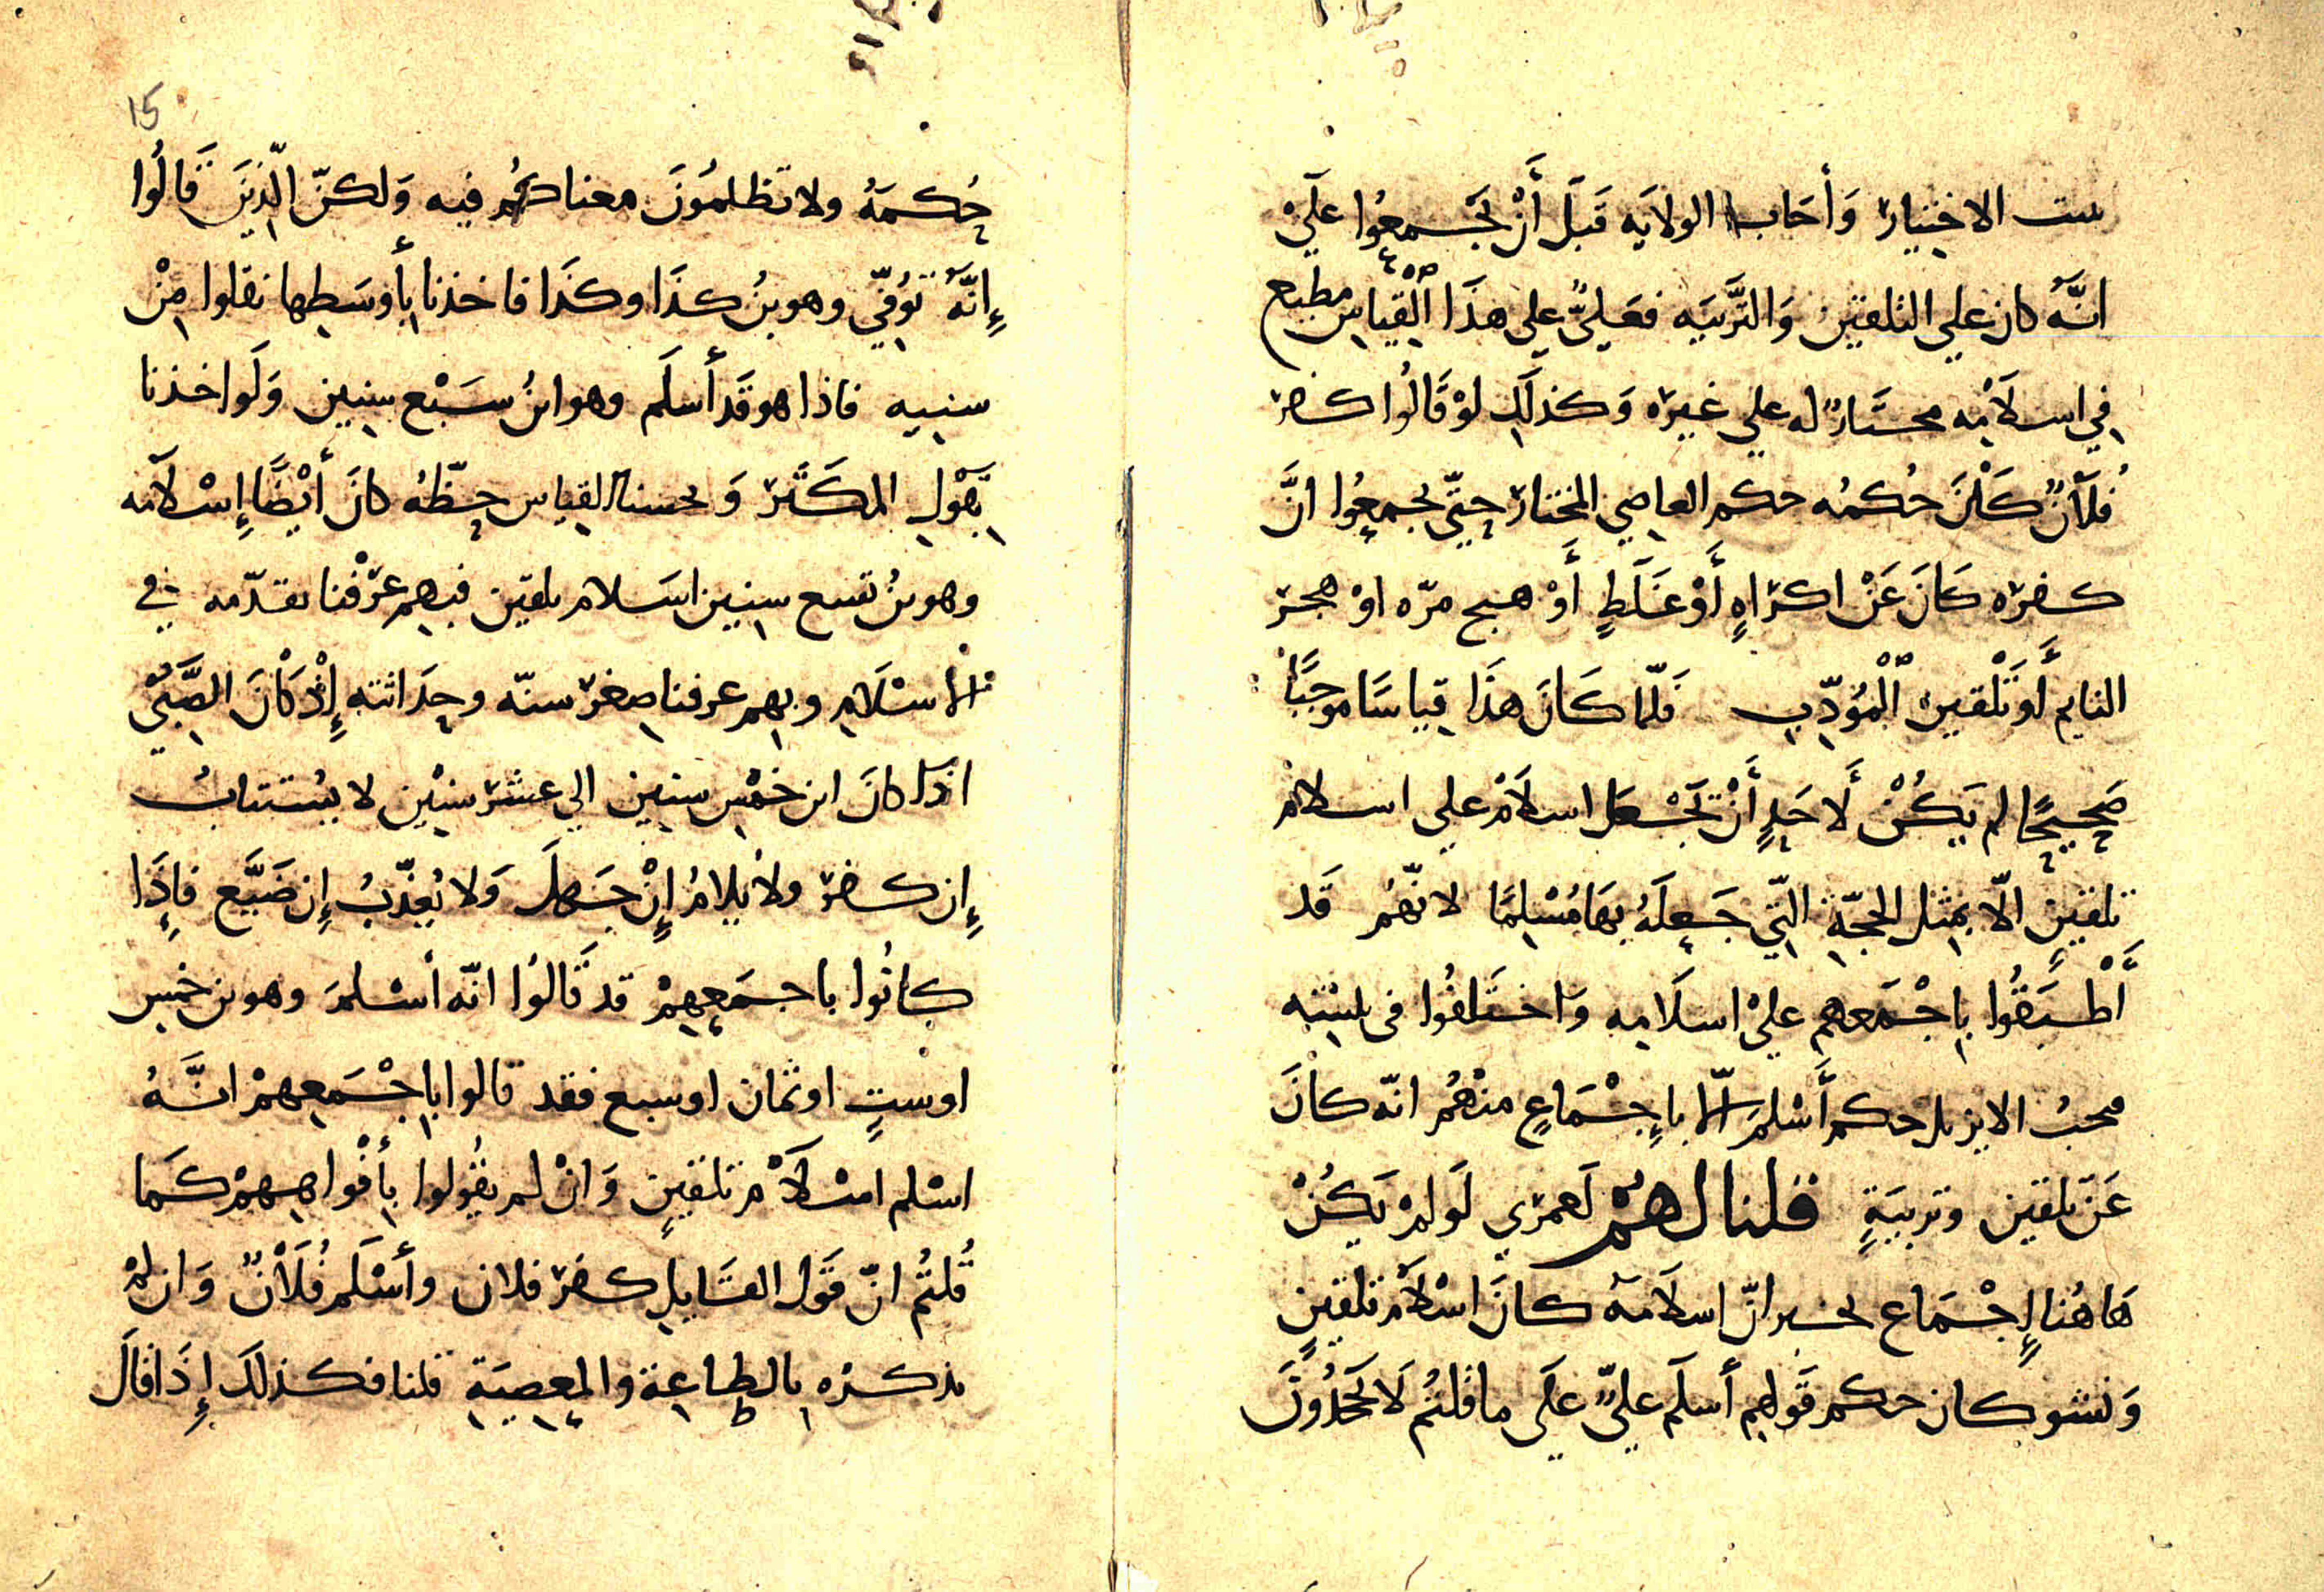 ست الاختيار وَأحَاب الولايَه قَبَلَ أَنْ يَجْمعُوا عليْ
انَّهُ كان علي التلقين وَالتَّربيَه فعَليٌّ علي هذَا القِياس مطيع
في اسلاَمِه مختَارٌ له علي غيره وَكذلَكِ لوْ قَالُوا كفر
فُلاَنٌ كَانَ حُكمُه حكم العاصي المختار حتّي يجمعُوا انَّ
كفره كَانَ عَنْ اكراهٍ أَوْ غَلَطٍ أَوْ هيج مرّه اوْ هجر
النايم أَو تَلْقين الْمُؤدّبِ فَلمّا كَانَ هذَا قِياسًا موجبًا
صَحِيحًا لم يَكُنْ لأَحَدٍ أَنْ يَجْعَلَ اسلاَمْ علي اسلامْ
تلقينٍ الّا بمثل الحجّةِ التّي جَعلَهُ بهَا مُسْلِمًا لانّهُم قَد
أَطْبَقُوا بِاجْمَعهِم عليْ اسلاَمِه وَاختَلفُوا في
حكم أَسْلمَ الّا باِجْمَاعٍ منْهُم انّه كانَ
عَنَ تلقين وتربيَةٍ قلنا لهُمْ لَعمري لَو لمْ يَكُنْ
هَاهُنا إِجْمَاع يخبر انّ اسلاَمهُ كانَ اسْلاَمْ تلقينٍ
وَنشو كان حكم قَولهِم أسلَم عليٌّ علَي ما قلتُم لاَ تَجْحَدُونَ
حُكمَهُ ولا تظلمُونَ معناكُم فيه وَلكنّ الّذِينَ قَالُوا
إِنَّهُ تُوُفّيَ وهو بنُ كذَا وكذَا فاخذنا بأَوسَطِها نقلوا مِنْ
سنيِه فاذا هو قَد أَسلَم وهو ابنُ سَبْع سِنين وَلَو اخذنا
بِقَوْلِ المكَثّر وَبحسنا القِياس حظّهُ كانَ أَيْضًا إِسْلاَمه
وهو بنُ تسع سِنين اسَلام تلقين فبهم عرَفْنا تقدّمه في
الأسْلَامِ وبهِم عرفنا صغرَ سنّه وحداثته إِذْ كَانَ الصَّبيُّ
اذَا كانَ ابن خَمْسِ سِنين الي عشر سنِيْن لا يُستتابُ
إِن كفر ولاُ يلامُ إِنْ جَهلَ وَلا يُعذّبُ إِن ضَيَّع فاِذَا
كانُوا باجمَعهِمْ قد قَالُوا انّه أسْلمَ وهو بن خمس
اوستٍ اوثمان اوسبع فقد قالوا باِجْمَعِهمْ انَّهُ
اسْلم اسْلاَمْ تلقينٍ وَانْ لم يقُولوا بأَفْواهِهمْ كمَا
قُلتُم انّ قَوْل القَايلِ كفر فلان وأَسْلَم فُلاَنٌ وَان لمْ
يذكرهُ بالطاعةِ والمعصِيَةِ قلنا فكذلَك إِذَا قالَ
15